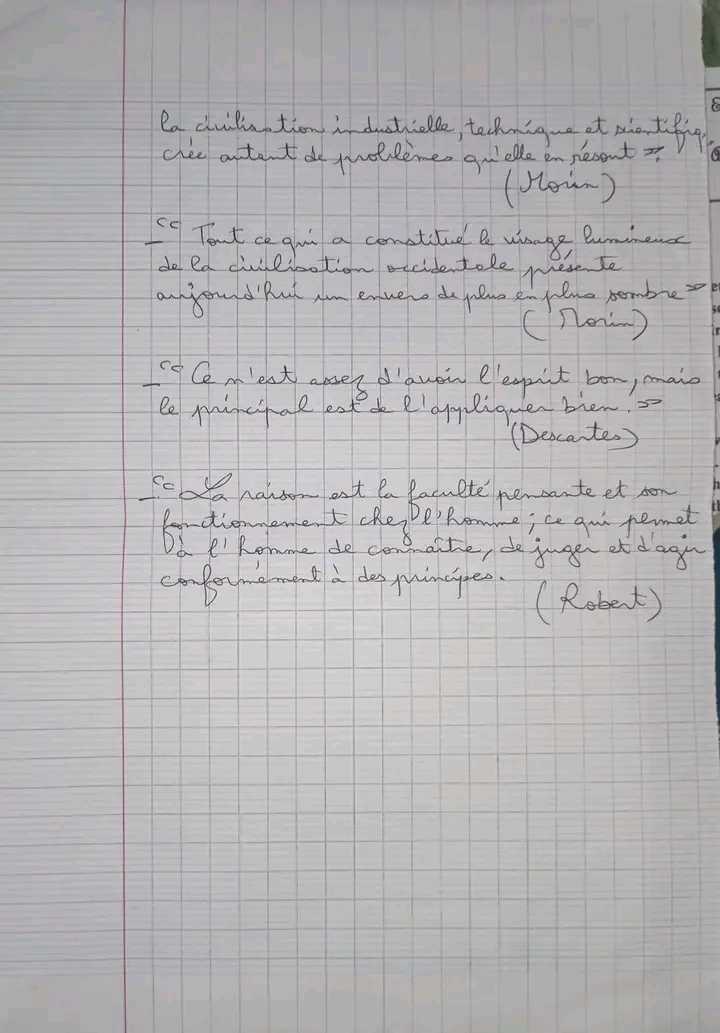 la civilisation industrielle, technique et scientifiq
crée autant de problèmes qu'elle en résout ».
(Morin)
- “ Tout ce qui a constitué le visage lumineux
de la civilisation occidentale présente
aujourd'hui un envers de plus en plus sombre »
(Morin)
- “ Ce n'est assez d'avoir l'esprit bon, mais
le principal est de l'appliquer bien. »
(Descartes)
- “ La raison est la faculté pensante et son
fonctionnement chez l'homme ; ce qui permet
à l'homme de connaître, de juger et d'agir
conformément à des principes.
(Robert)